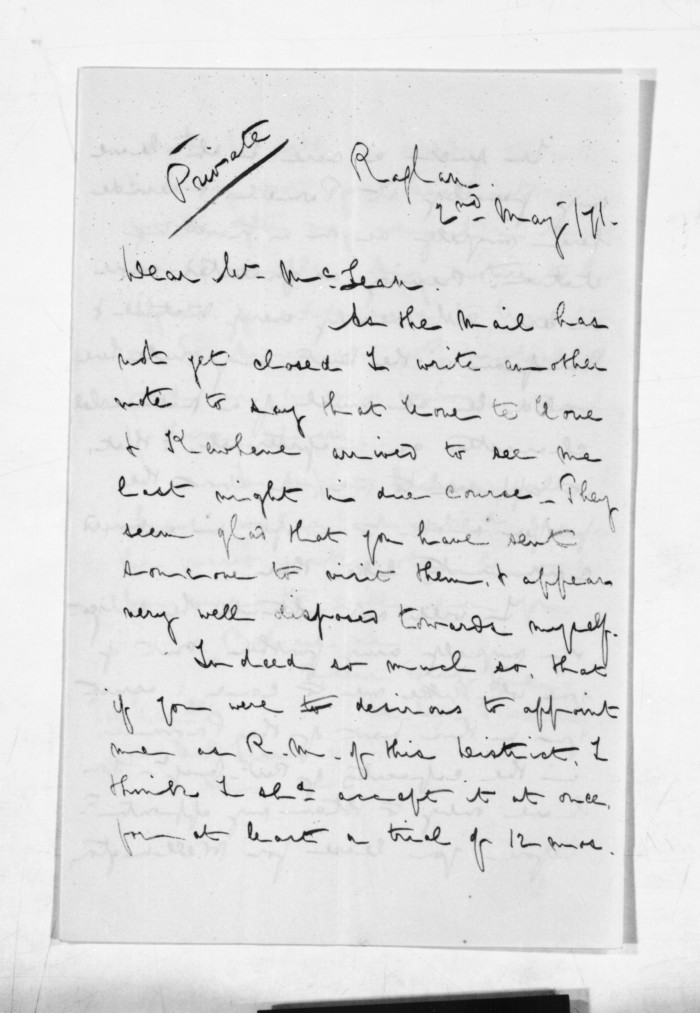 Private
Raglan
2nd May /71.
Dear Mr McLean
As the Mail has
not yet closed I write another
note to say that Hone te Hone
& Kawhena arrived to see me
last night in due course - They
seem glad that you have sent
someone to visit them, & appear
very well disposed towards myself.
Indeed so much so, that
if you were to desirous to appoint
me as R.M. of this District, I
think I shd accept it at once,
for at least a trial of 12 mos.